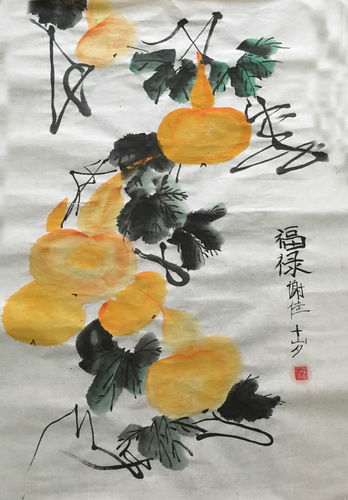 福禄
谢佳 十一岁